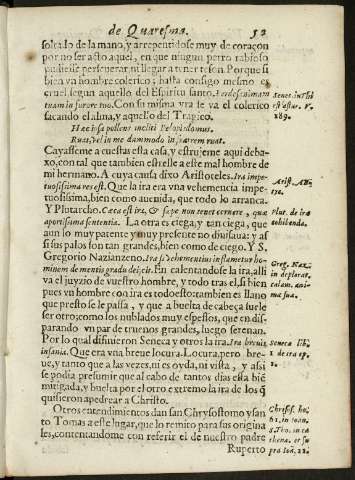 de Quaresma. 52
soltalo de la mano, y arrepentidose muy de coraçon
por no ser acto aquel, en que ningun perro rabioso
pudiesse perseverar, ni llegar a tener teson. Porque si
bien vn hombre colerico; hasta consigo mesmo es
cruel segun aquello del Espiritu santo, Perdes animam
tuam in furore tuo. Con su misma yra te va el colerico
sacando el alma, y aquello del Tragico.
Hæc ipsa pollens incliti Pelopis domus
Ruat, vel in me dummodo in fratrem ruat.
Cayasseme a cuestas esta casa, y estrujeme aqui deba-
xo, con tal que tambien estrelle a este mal hombre de
mi hermano. A cuya causa dixo Aristoteles. Ira impe-
tuosissima res est. Que la ira era vna vehemencia impe-
tuosissima, bien como auenida, que todo lo arranca.
Y Plutarcho. Cæca est ira, & sæpe non tenet cernere, quæ
apertissima sententia. La otra es ciega, y tan ciega, que
aun lo muy patente y muy presente no diuisaua: y assi
si sus palos son tan grandes, bien como de ciego. Y S.
Gregorio Nazianzeno. Ira si vehementius inflametur ho-
minem de mentis gradu deijcit. En calentandose la ira, alli
va el juyzio de vuestro hombre, y todo tras el, si bien
pues vn hombre con ira es todo esto: tambien es llano
que presto se le passa, y que a buelta de cabeça suele
ser otro; como los nublados muy espessos, que en dis-
parando vn par de truenos grandes, luego serenan.
Por lo qual difinieron Seneca y otros la ira. Ira breuis
insania. Que era vna breue locura. Locura, pero bre-
ue, y tanto que a las vezes, ni es oyda, ni vista, y assi
se podia presumir que al cabo de tantos dias esta biẽ
mitigada, y buelta por el otro extremo la ira de los q̃
quisieron apedrear a Christo.
Otros entendimientos dan san Chrysostomo y san
to Tomas a este lugar, que lo remito para sus origina
les, contentandome con referir el de nuestro padre
Ruperto
289.
Plut. de ira
cohibenda.
Greg. Naz.
ma sua.
Seneca lib.
1 de ira cp.